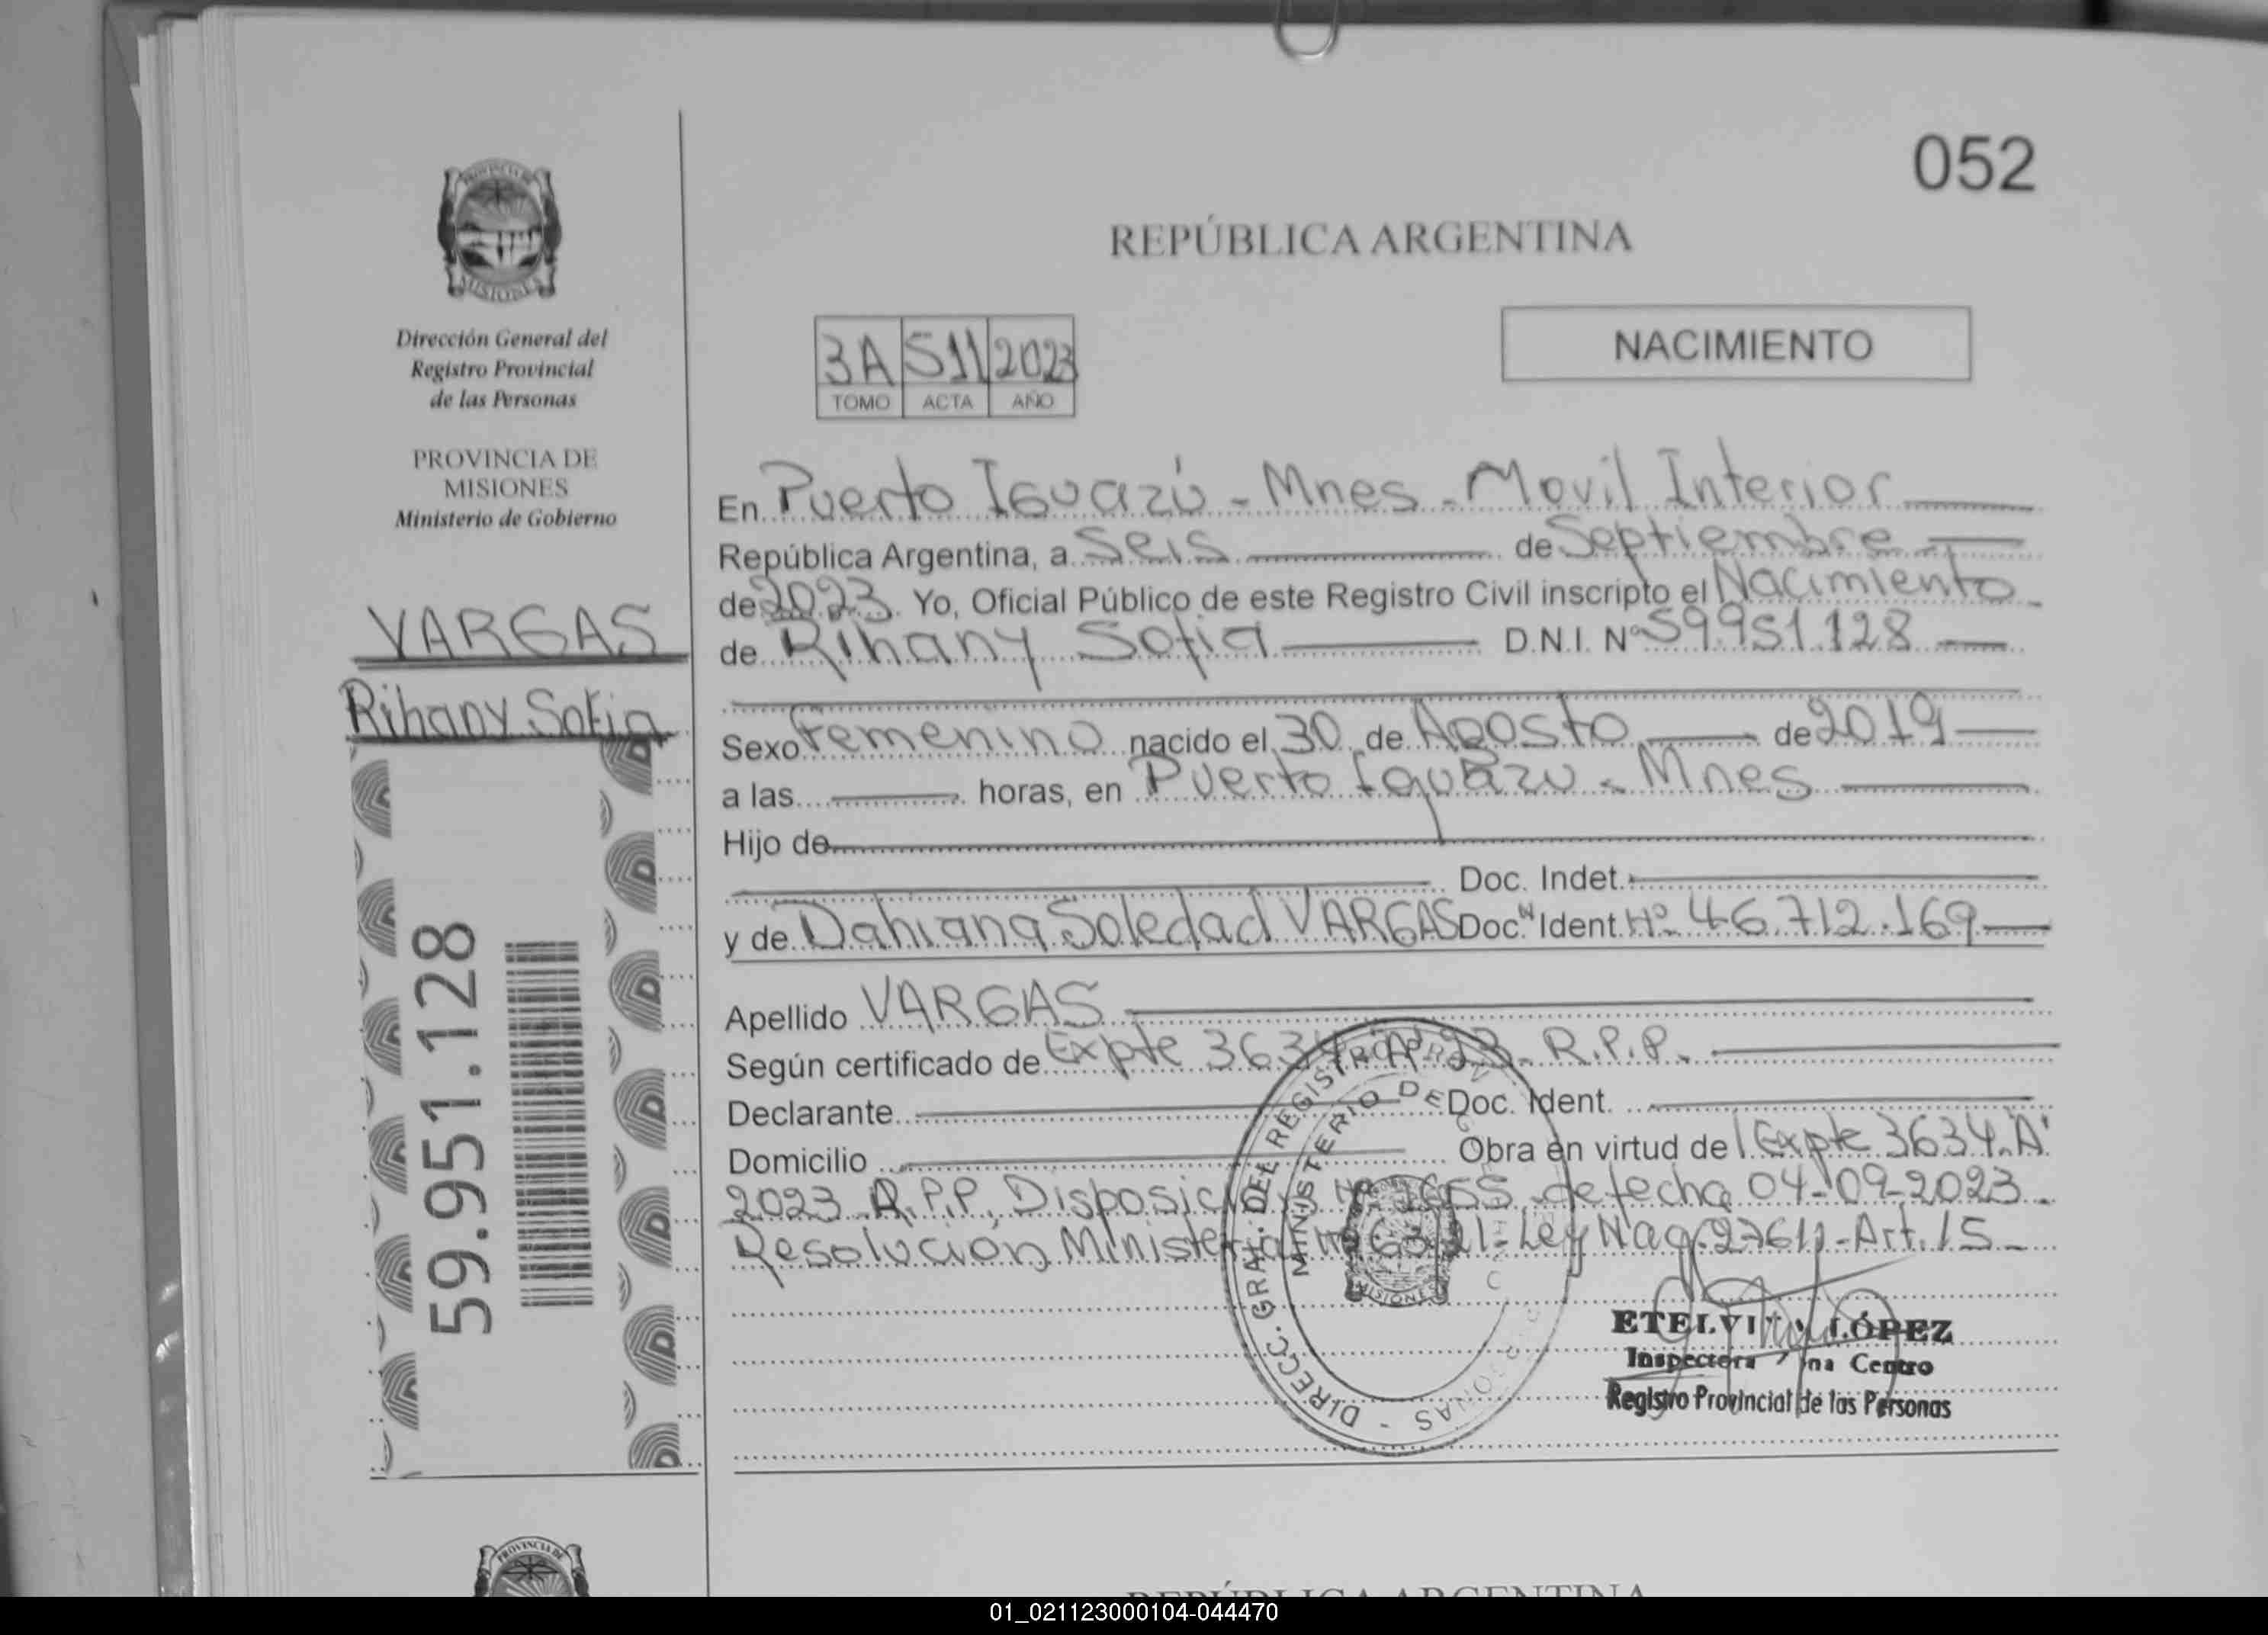 052
PROVINCIA DE
MISIONES
Dirección General del
Registro Provincial
de las Personas
PROVINCIA DE
MISIONES
Ministerio de Gobierno
VARGAS
Rihany Sofia
59.951.128
REPÚBLICA ARGENTINA
NACIMIENTO
3A 511 2023
TOMO ACTA AÑO
En Puerto Iguazú - Mnes - Movil Interior
República Argentina, a Seis de Septiembre
de 2023 Yo, Oficial Público de este Registro Civil inscripto el Nacimiento
de Rihany Sofia D.N.I. Nº 59.951.128
Sexo Femenino nacido el 30 de Agosto de 2019
a las horas, en Puerto Iguazu - Mnes
Hijo de
Doc. Indet.
y de Dahiana Soledad VARGAS Doc. Ident. Nº 46.712.169
Apellido VARGAS
Según certificado de Expte 3634 "A" 23 - R.P.P.
Declarante Doc. Ident.
Domicilio Obra en virtud de Expte 3634 "A"
2023 R.P.P. Disposición Nº de fecha 04-09-2023
Resolución Ministerial Nº Ley Nac 27611 - Art. 15
DIRECC. GRAL. DEL REGISTRO PROV
MINISTERIO DE
MISIONES
LÓPEZ
Inspectora Centro
Registro Provincial de las Personas
PROVINCIA DE
REPÚBLICA ARGENTINA
01_021123000104-044470